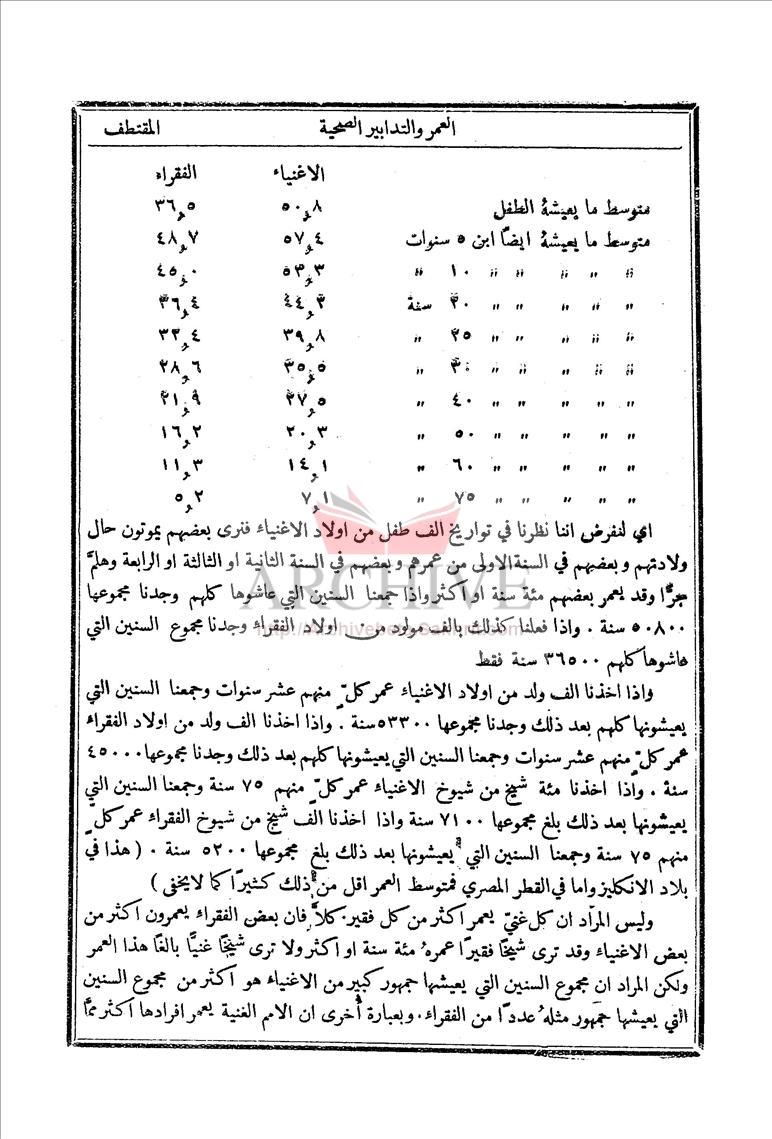 المقتطف العمر والتدابير الصحية
الاغنياء الفقراء
متوسط ما يعيشهُ الطفل ٥٠٫٨ ٣٦٫٥
متوسط ما يعيشهُ ايضًا ابن ٥ سنوات ٥٧٫٤ ٤٨٫٧
〃 〃 〃 〃 〃 ١٠ 〃 ٥٣٫٣ ٤٥٫٠
〃 〃 〃 〃 〃 ٢٠ سنة ٤٤٫٣ ٣٦٫٤
〃 〃 〃 〃 〃 ٢٥ 〃 ٣٩٫٨ ٣٢٫٤
〃 〃 〃 〃 〃 ٣٠ 〃 ٣٥٫٥ ٢٨٫٦
〃 〃 〃 〃 〃 ٤٠ 〃 ٢٧٫٥ ٢١٫٩
〃 〃 〃 〃 〃 ٥٠ 〃 ٢٠٫٣ ١٦٫٢
〃 〃 〃 〃 〃 ٦٠ 〃 ١٤٫١ ١١٫٣
〃 〃 〃 〃 〃 ٧٥ 〃 ٧٫١ ٥٫٢
اي لنفرض اننا نظرنا في تواريخ الف طفل من اولاد الاغنياء فنرى بعضهم يموتون حال
ولادتهم وبعضهم في السنة الاولى من عمرهم وبعضهم في السنة الثانية او الثالثة او الرابعة وهلمَّ
جرًّا وقد يعمر بعضهم مئة سنة او اكثر واذا جمعنا السنين التي عاشوها كلهم وجدنا مجموعها
٥٠٨٠٠ سنة . واذا فعلنا كذلك بالف مولود من اولاد الفقراء وجدنا مجموع السنين التي
عاشوها كلهم ٣٦٥٠٠ سنة فقط
واذا اخذنا الف ولد من اولاد الاغنياء عمر كلّ منهم عشر سنوات وجمعنا السنين التي
يعيشونها كلهم بعد ذلك وجدنا مجموعها ٥٣٣٠٠ سنة . واذا اخذنا الف ولد من اولاد الفقراء
عمر كلّ منهم عشر سنوات وجمعنا السنين التي يعيشونها كلهم بعد ذلك وجدنا مجموعها ٤٥٠٠٠
سنة . واذا اخذنا مئة شيخ من شيوخ الاغنياء عمر كلّ منهم ٧٥ سنة وجمعنا السنين التي
يعيشونها بعد ذلك بلغ مجموعها ٧١٠٠ سنة واذا اخذنا الف شيخ من شيوخ الفقراء عمر كلّ
منهم ٧٥ سنة وجمعنا السنين التي يعيشونها بعد ذلك بلغ مجموعها ٥٢٠٠ سنة . ( هذا في
بلاد الانكليز واما في القطر المصري فمتوسط العمر اقل من ذلك كثيرًا كما لا يخفى )
وليس المراد ان كل غنيّ يعمر اكثر من كل فقير. كلاَّ فان بعض الفقراء يعمرون اكثر من
بعض الاغنياء وقد ترى شيخًا فقيرًا عمرهُ مئة سنة او اكثر ولا ترى شيخًا غنيًّا بالغًا هذا العمر
ولكن المراد ان مجموع السنين التي يعيشها جمهور كبير من الاغنياء هو اكثر من مجموع السنين
التي يعيشها جمهور مثلهُ عددًا من الفقراء. وبعبارة أُخرى ان الامم الغنية يعمر افرادها اكثر ممَّا
ARCHIVE